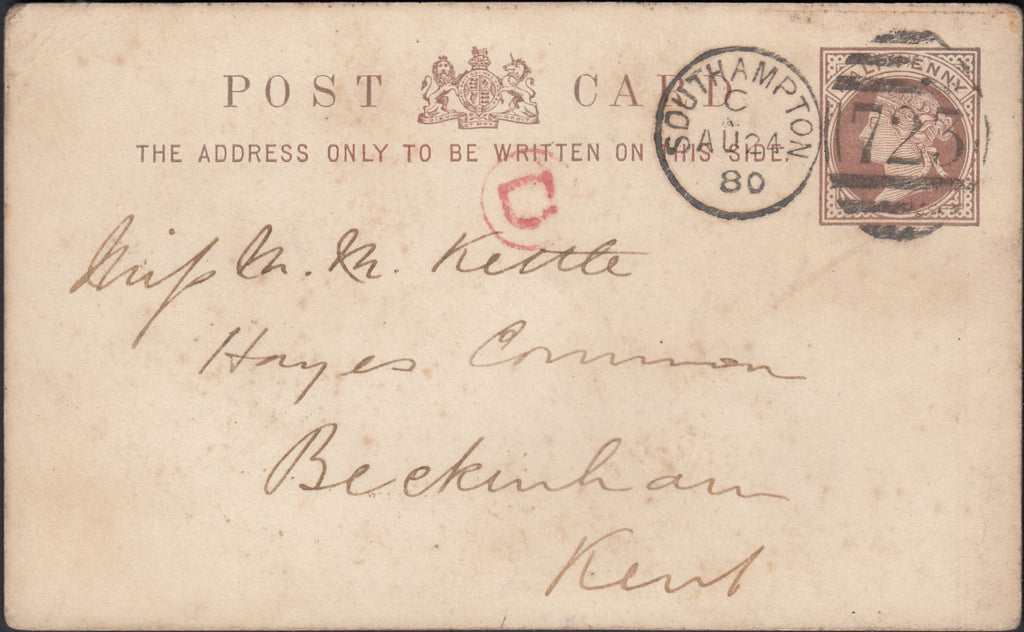 POST CARD
THE ADDRESS ONLY TO BE WRITTEN ON THIS SIDE.
SOUTHAMPTON
C
AU 24
80
HALFPENNY
723
D
Miss M. M. Kettle
Hayes Common
Beckenham
Kent